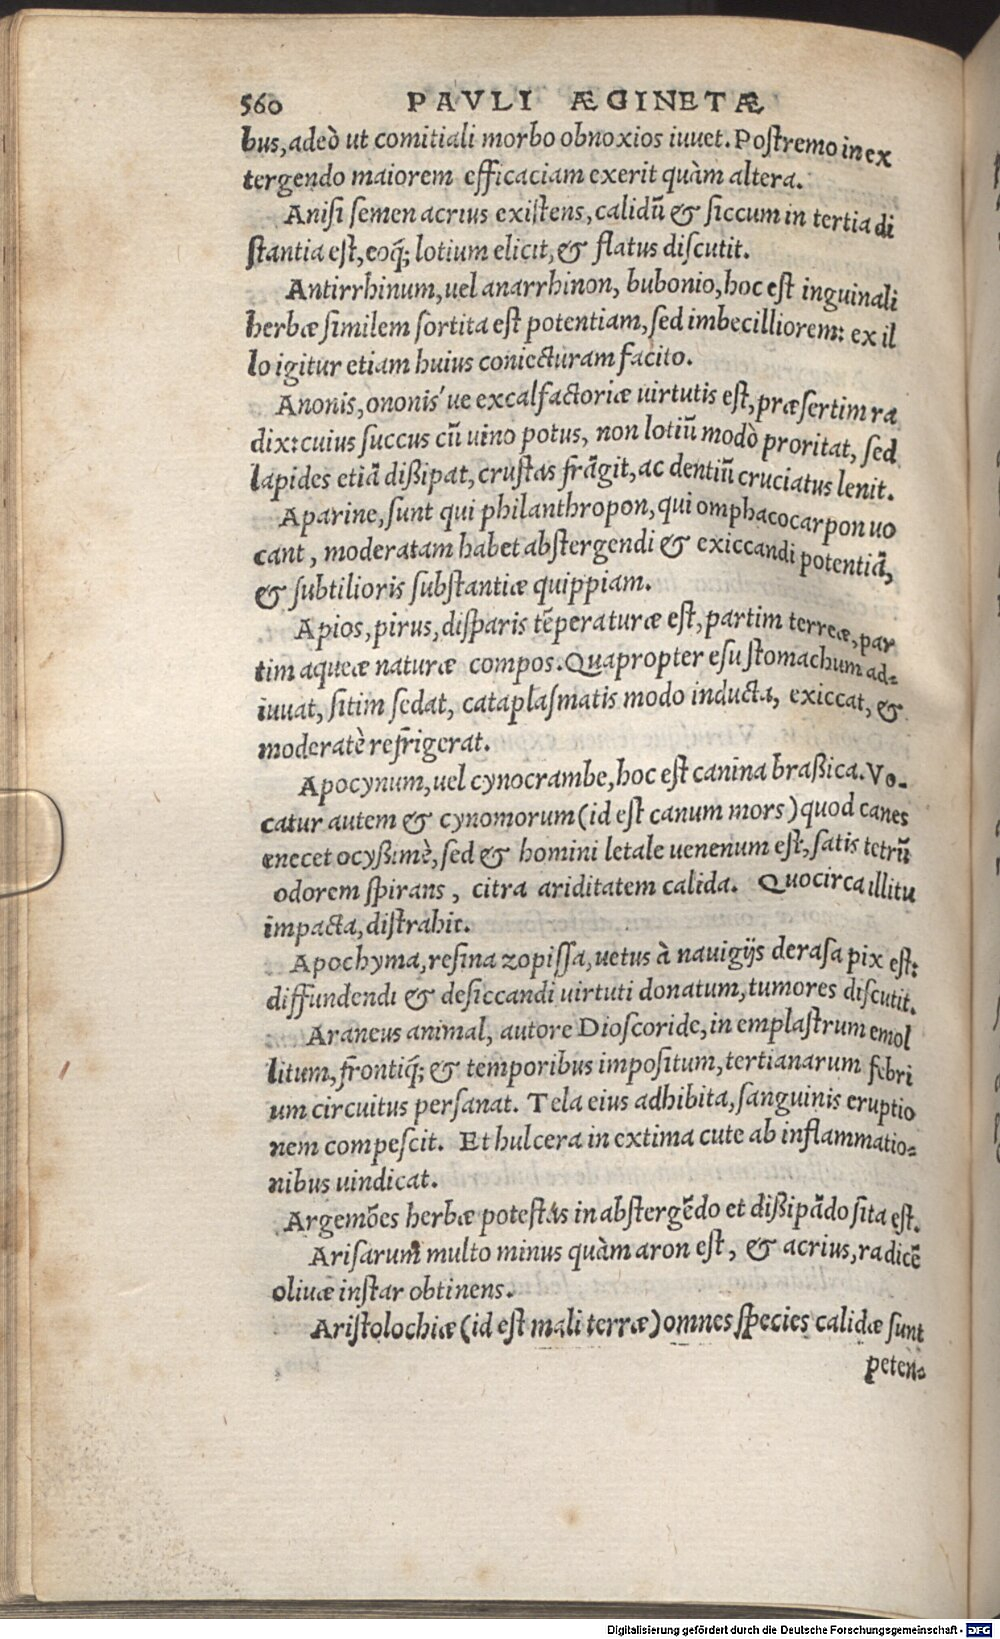 560 PAVLI ÆGINETÆ
bus, adeò ut comitiali morbo obnoxios iuuet. Postremo in ex
tergendo maiorem efficaciam exerit quàm altera.
Anisi semen acrius existens, calidū & siccum in tertia di
stantia est, eoq́; lotium elicit, & flatus discutit.
Antirrhinum, uel anarrhinon, bubonio, hoc est inguinali
herbæ similem sortita est potentiam, sed imbecilliorem: ex il
lo igitur etiam huius coniecturam facito.
Anonis, ononis' ue excalfactoriæ uirtutis est, præsertim ra
dix: cuius succus cū uino potus, non lotiū modò proritat, sed
lapides etiā dißipat, crustas frāgit, ac dentiū cruciatus lenit.
Aparine, sunt qui philanthropon, qui omphacocarpon uo
cant, moderatam habet abstergendi & exiccandi potentiā,
& subtilioris substantiæ quippiam.
Apios, pirus, disparis tēperaturæ est, partim terreæ, par
tim aqueæ naturæ compos. Quapropter esu stomachum ad-
iuuat, sitim sedat, cataplasmatis modo inducta, exiccat, &
moderatè refrigerat.
Apocynum, uel cynocrambe, hoc est canina braßica. Vo-
catur autem & cynomorum (id est canum mors) quod canes
enecet ocyßimè, sed & homini letale uenenum est, satis tetrū
odorem spirans, citra ariditatem calida. Quocirca illitu
impacta, distrahit.
Apochyma, resina zopissa, uetus à nauigijs derasa pix est:
diffundendi & desiccandi uirtuti donatum, tumores discutit.
Araneus animal, autore Dioscoride, in emplastrum emol
litum, frontiq́; & temporibus impositum, tertianarum febri
um circuitus persanat. Tela eius adhibita, sanguinis eruptio
nem compescit. Et hulcera in extima cute ab inflammatio-
nibus uindicat.
Argemões herbæ potestas in abstergēdo et dißipādo sita est.
Arisarum multo minus quàm aron est, & acrius, radicē
oliuæ instar obtinens.
Aristolochiæ (id est mali terræ) omnes species calidæ sunt
peten-
Digitalisierung gefördert durch die Deutsche Forschungsgemeinschaft - DFG